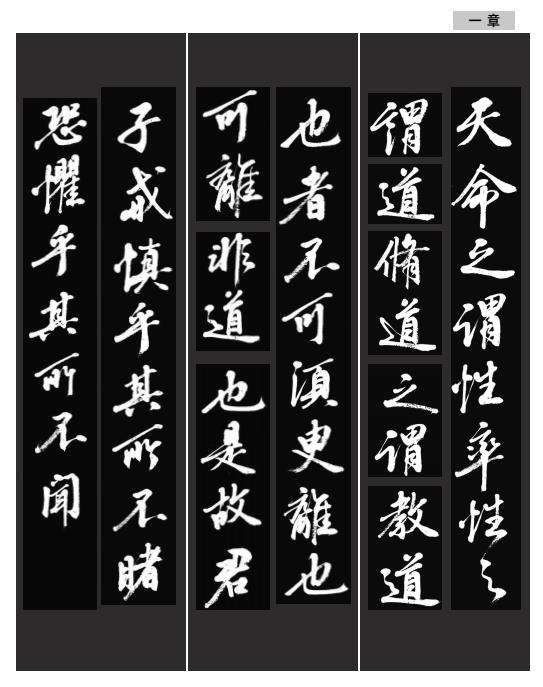 一章
天命之謂性率性之
謂道脩道之謂教道
也者不可須臾離也
可離非道也是故君
子戒慎乎其所不睹
恐懼乎其所不聞